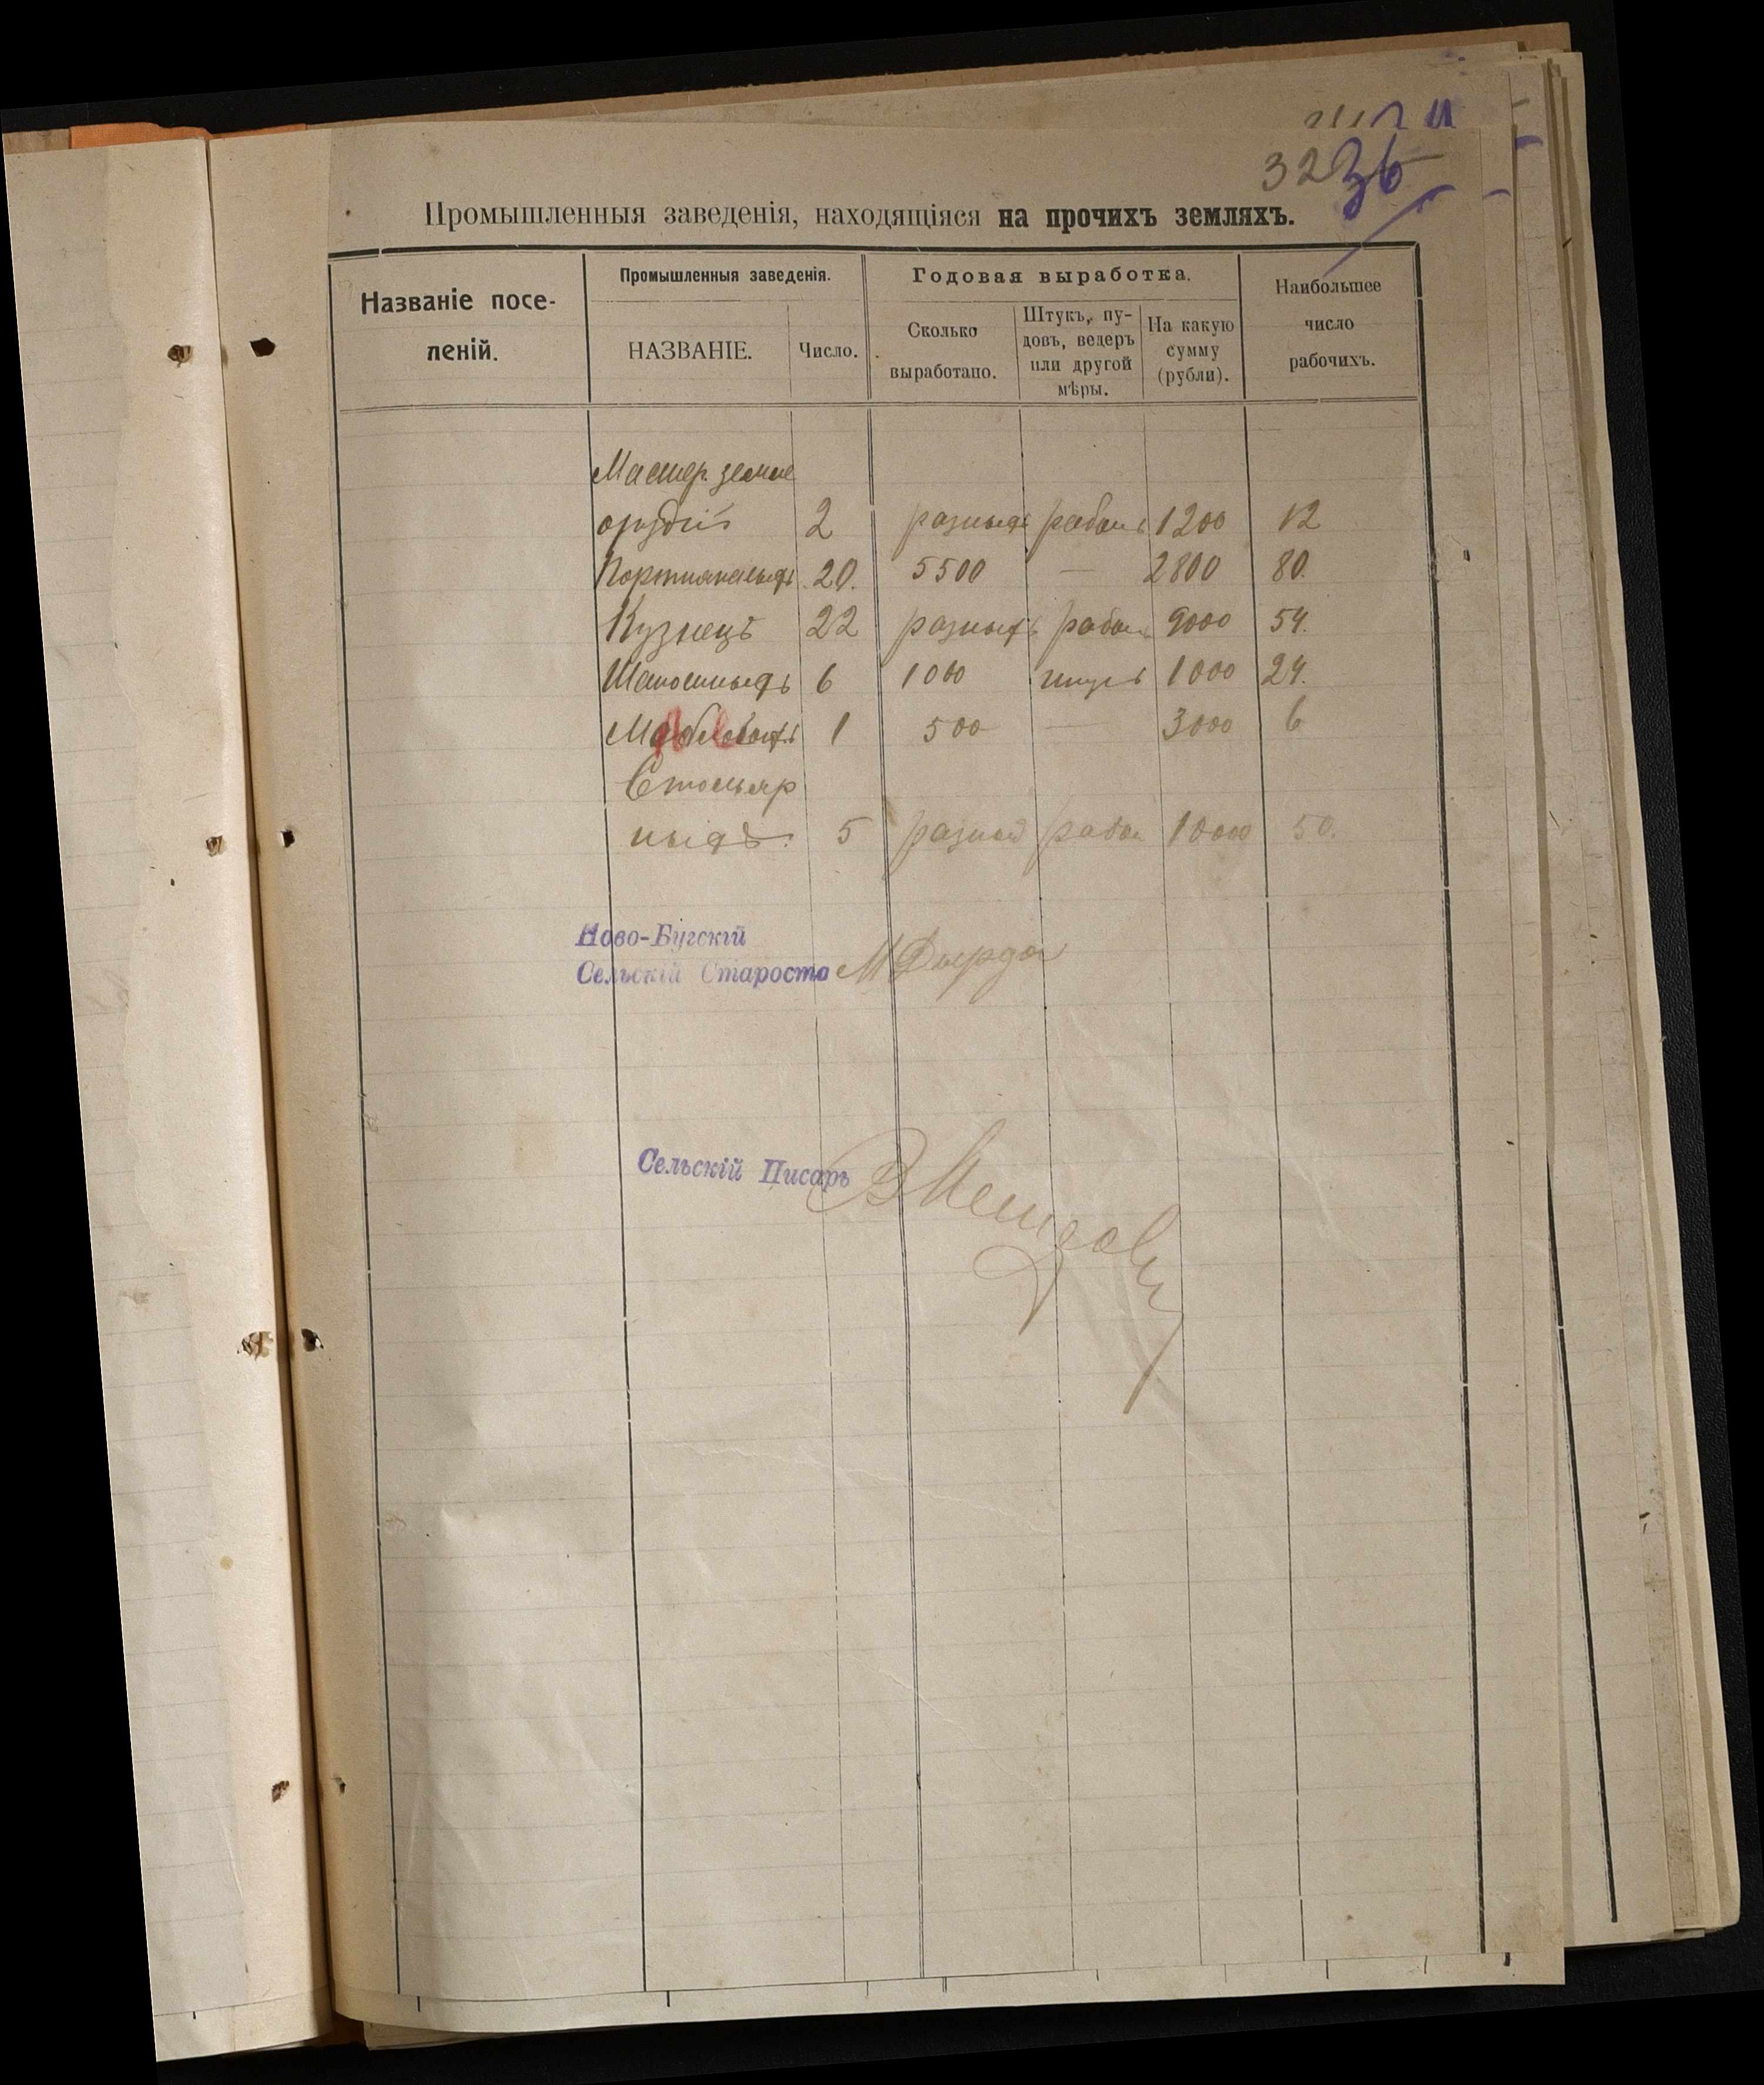 32 36
Промышленныя заведенія, находящіяся на прочихъ земляхъ.
Названіе посе-
леній.
Промышленныя заведенія.
НАЗВАНІЕ.
Число.
Годовая выработка.
Сколько
выработано.
Штукъ, пу-
довъ, ведеръ
или другой
мѣры.
На какую
сумму
(рубли).
Наибольшее
число
рабочихъ.
Мастер. земле
орудій 2 разныхъ работъ 1200 12
Портняжныхъ 20. 5500 — 2800 80.
Кузнецъ 22 разныхъ работ 9000 54.
Шапошныхъ 6 1000 штукъ 1000 24.
1 500 — 3000 6
Столяр
ныхъ. 5 разной работ 10000 50.
Ново-Бугскій
Сельскій Староста
Сельскій Писарь